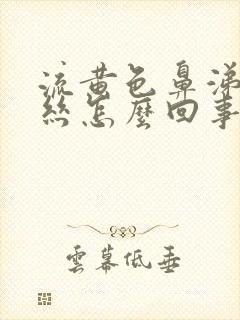 流黃色鼻涕
絲怎麼回事
雲幕低垂